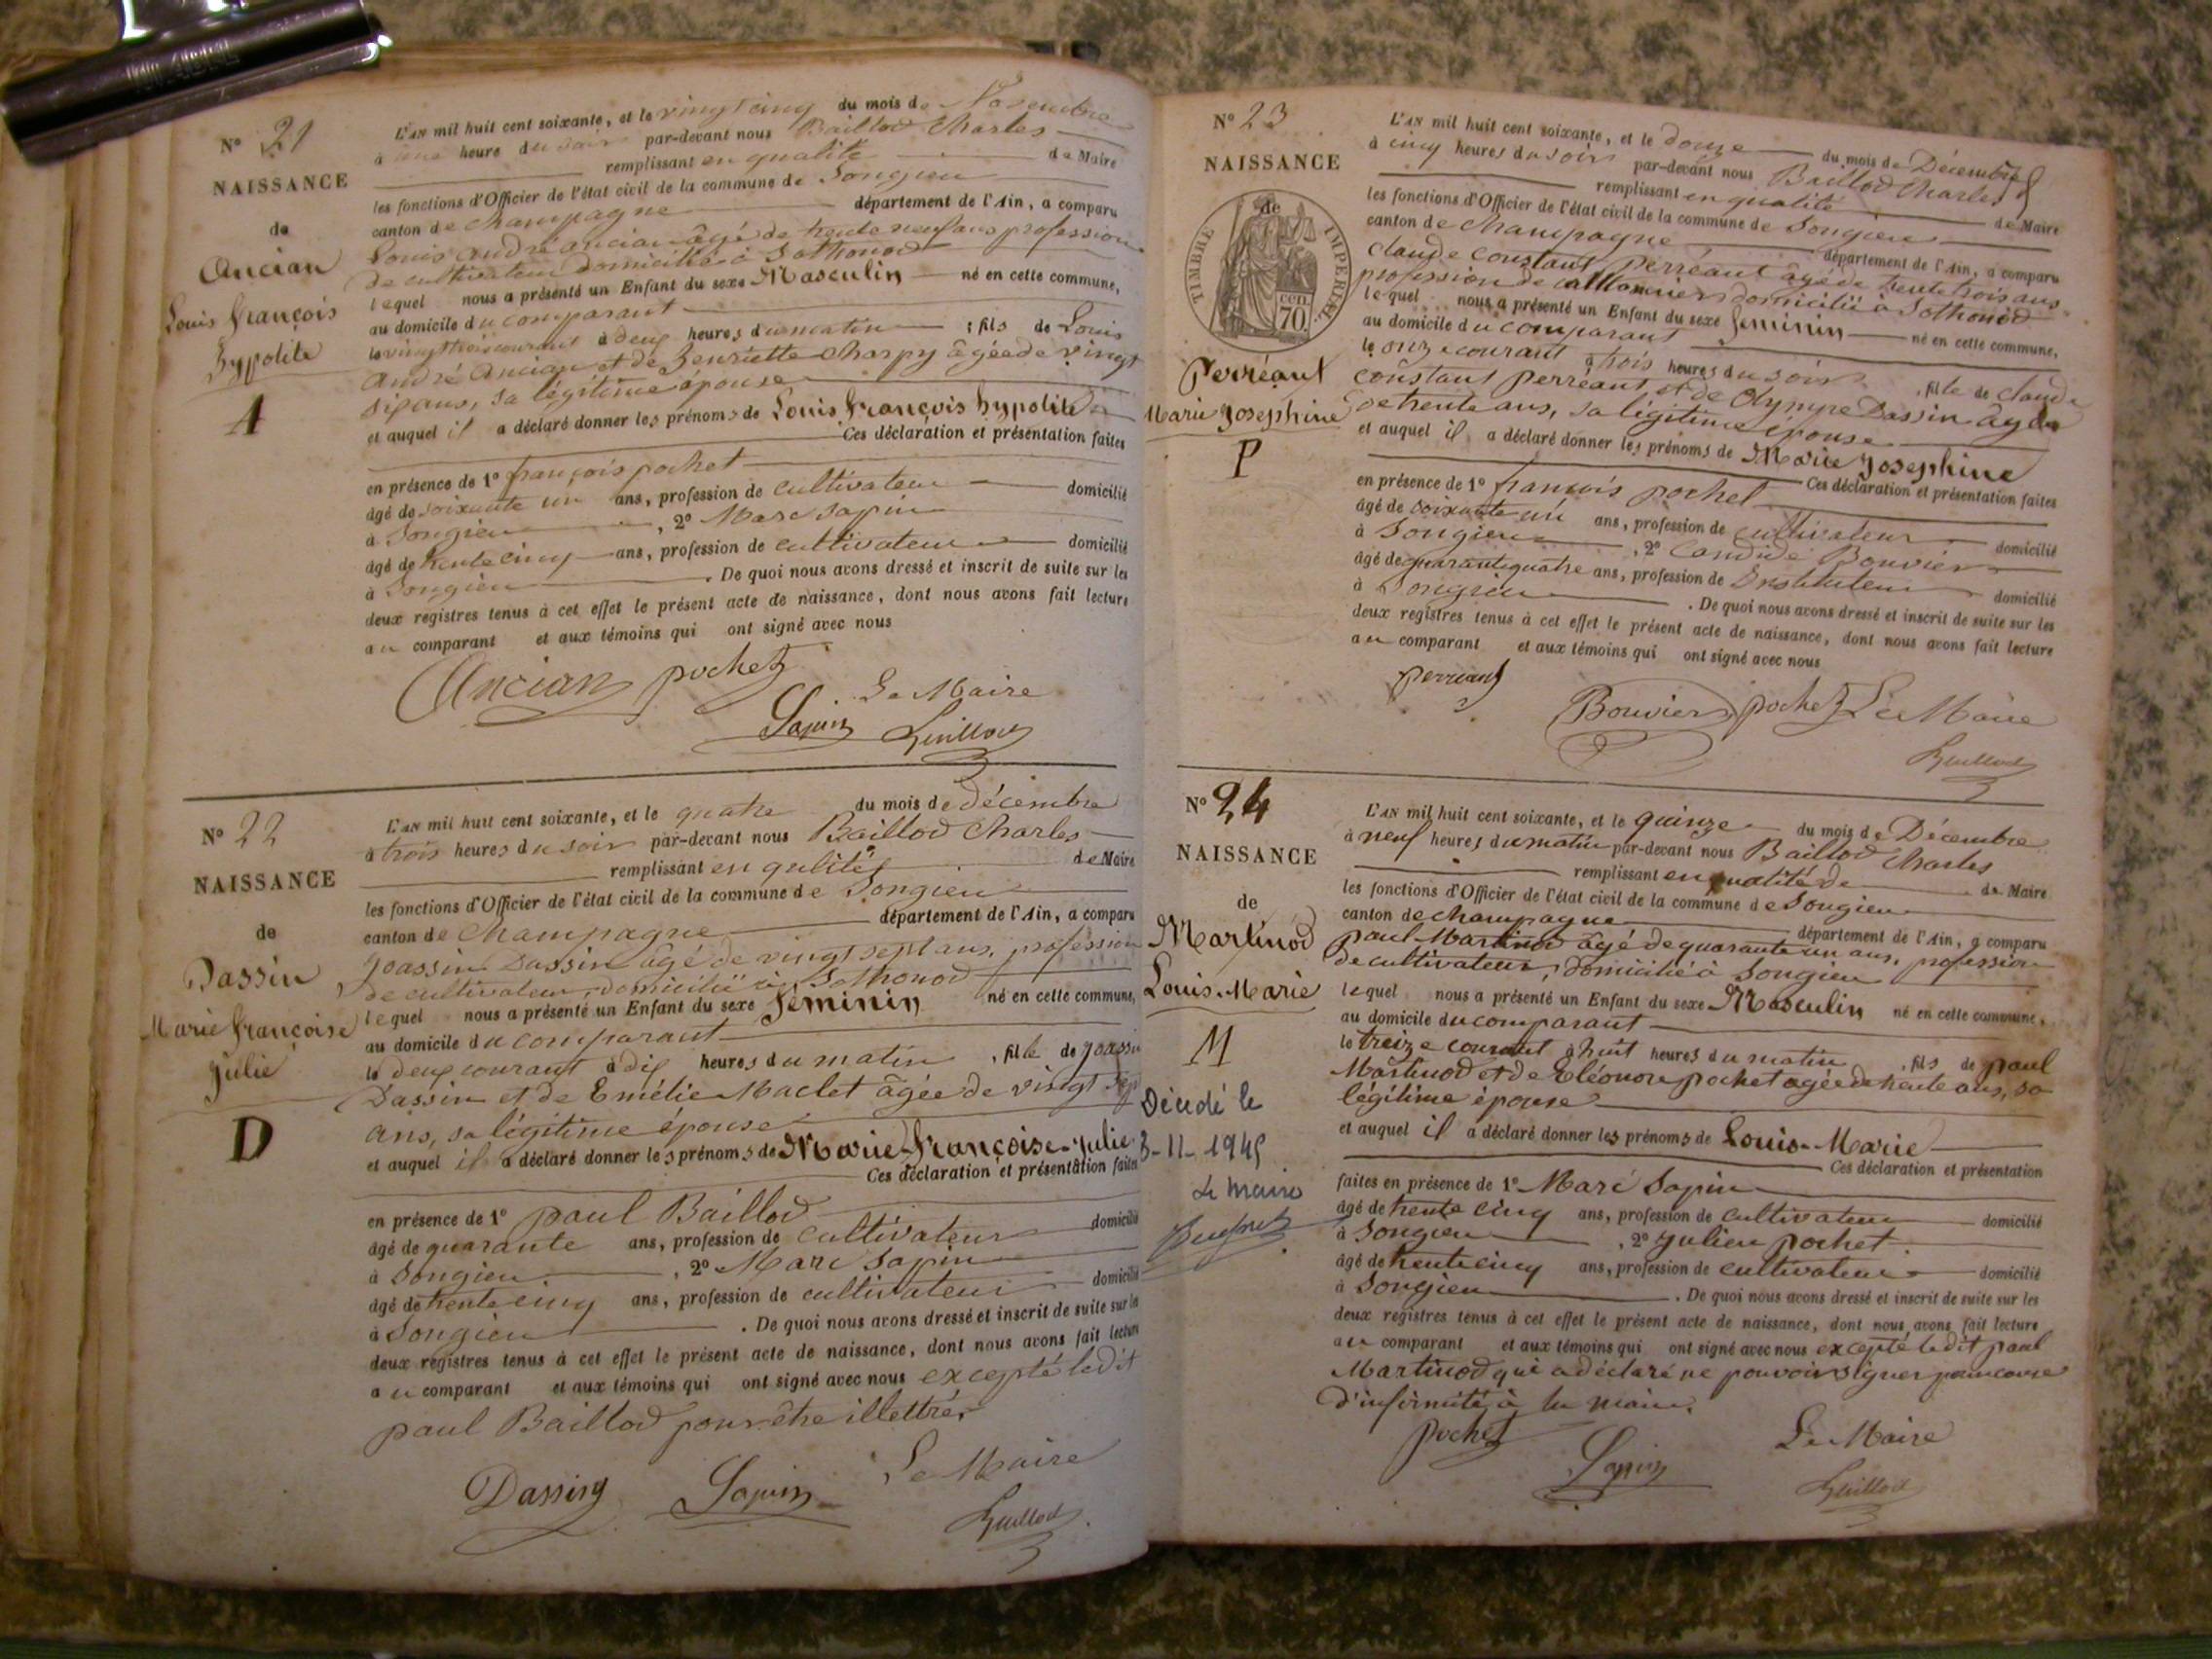 N° 21
NAISSANCE
de
Ancian
Louis françois
hypolite
A
L'AN mil huit cent soixante, et le vingt cinq du mois de Novembre
à une heure du soir par-devant nous Baillod Charles
remplissant en qualité de Maire
les fonctions d'Officier de l'état civil de la commune de Songieu
canton de Champagne département de l'Ain, a comparu
Louis andré ancian âgé de trente neuf ans profession
de cultivateur domicilié à Sothonod
lequel nous a présenté un Enfant du sexe Masculin né en cette commune,
au domicile du comparant
le vingt trois courant à deux heures du matin ; fils de Louis
andré Ancian et de henriette Charpy âgée de vingt
six ans, sa légitime épouse
et auquel il a déclaré donner les prénoms de Louis françois hypolite
Ces déclaration et présentation faites
en présence de 1° françois pochet
âgé de soixante un ans, profession de cultivateur domicilié
à Songieu , 2° Marc Sapin
âgé de trente cinq ans, profession de cultivateur domicilié
à Songieu . De quoi nous avons dressé et inscrit de suite sur les
deux registres tenus à cet effet le présent acte de naissance, dont nous avons fait lecture
au comparant et aux témoins qui ont signé avec nous
Ancian pochet
Le Maire
Sapin Baillod
N° 22
NAISSANCE
de
Dassin
Marie françoise
julie
D
L'AN mil huit cent soixante, et le quatre du mois de décembre
à trois heures du soir par-devant nous Baillod Charles
remplissant en qulité de Maire
les fonctions d'Officier de l'état civil de la commune de Songieu
canton de Champagne département de l'Ain, a comparu
joassin Dassin âgé de vingt sept ans, profession
de cultivateur, domicilié à Sothonod
lequel nous a présenté un Enfant du sexe féminin né en cette commune,
au domicile du comparant
le deux courant à dix heures du matin , fille de joassin
Dassin et de Emélie Maclet âgée de vingt sept
ans, sa légitime épouse
et auquel il a déclaré donner les prénoms de Marie-françoise-julie
Ces déclaration et présentation faites
en présence de 1° paul Baillod
âgé de quarante ans, profession de cultivateur domicilié
à Songieu , 2° Marc Sapin
âgé de trente cinq ans, profession de cultivateur domicilié
à Songieu . De quoi nous avons dressé et inscrit de suite sur les
deux registres tenus à cet effet le présent acte de naissance, dont nous avons fait lecture
au comparant et aux témoins qui ont signé avec nous excepté ledit
paul Baillod pour être illettré.
Dassin Sapin Le Maire
Baillod
N° 23
NAISSANCE
de
TIMBRE IMPERIAL
70 cen
Perréant
Marie Josephine
P
L'AN mil huit cent soixante, et le douze du mois de Décembre
à cinq heures du soir par-devant nous Baillod Charles
remplissant en qualité de Maire
les fonctions d'Officier de l'état civil de la commune de Songieu
canton de Champagne département de l'Ain, a comparu
Claude constant perréant âgé de trente trois ans
profession de domicilié à Sothonod
lequel nous a présenté un Enfant du sexe féminin né en cette commune,
au domicile du comparant
le onze courant à trois heures du soir , fille de claude
constant perréant, et de Olympe Dassin âgée
de trente ans, sa légitime épouse
et auquel il a déclaré donner les prénoms de Marie Josephine
Ces déclaration et présentation faites
en présence de 1° françois pochet
âgé de soixante un ans, profession de cultivateur domicilié
à Songieu , 2° Candide Bouvier
âgé de quarante quatre ans, profession de Instituteur domicilié
à Songieu . De quoi nous avons dressé et inscrit de suite sur les
deux registres tenus à cet effet le présent acte de naissance, dont nous avons fait lecture
au comparant et aux témoins qui ont signé avec nous
perréant
Bouvier pochet Le Maire
Baillod
N° 24
NAISSANCE
de
Martinod
Louis-Marie
M
Décédé le
3-11-1945
Le maire
L'AN mil huit cent soixante, et le quinze du mois de Décembre
à neuf heures du matin par-devant nous Baillod Charles
remplissant en qualité de de Maire
les fonctions d'Officier de l'état civil de la commune de Songieu
canton de champagne département de l'Ain, a comparu
paul Martinod âgé de quarante un ans, profession
de cultivateur, domicilié à Songieu
lequel nous a présenté un Enfant du sexe Masculin né en cette commune,
au domicile du comparant
le treize courant à huit heures du matin , fils de paul
Martinod et de Eléonore pochet agée de trente ans, sa
légitime épouse
et auquel il a déclaré donner les prénoms de Louis-Marie
Ces déclaration et présentation
faites en présence de 1° Marc Sapin
âgé de trente cinq ans, profession de cultivateur domicilié
à Songieu , 2° julien pochet
âgé de trente cinq ans, profession de cultivateur domicilié
à Songieu . De quoi nous avons dressé et inscrit de suite sur les
deux registres tenus à cet effet le présent acte de naissance, dont nous avons fait lecture
au comparant et aux témoins qui ont signé avec nous excepté ledit paul
Martinod qui a déclaré ne pouvoir signer pour cause
d'infirmité à la main.
pochet Sapin Le Maire
Baillod